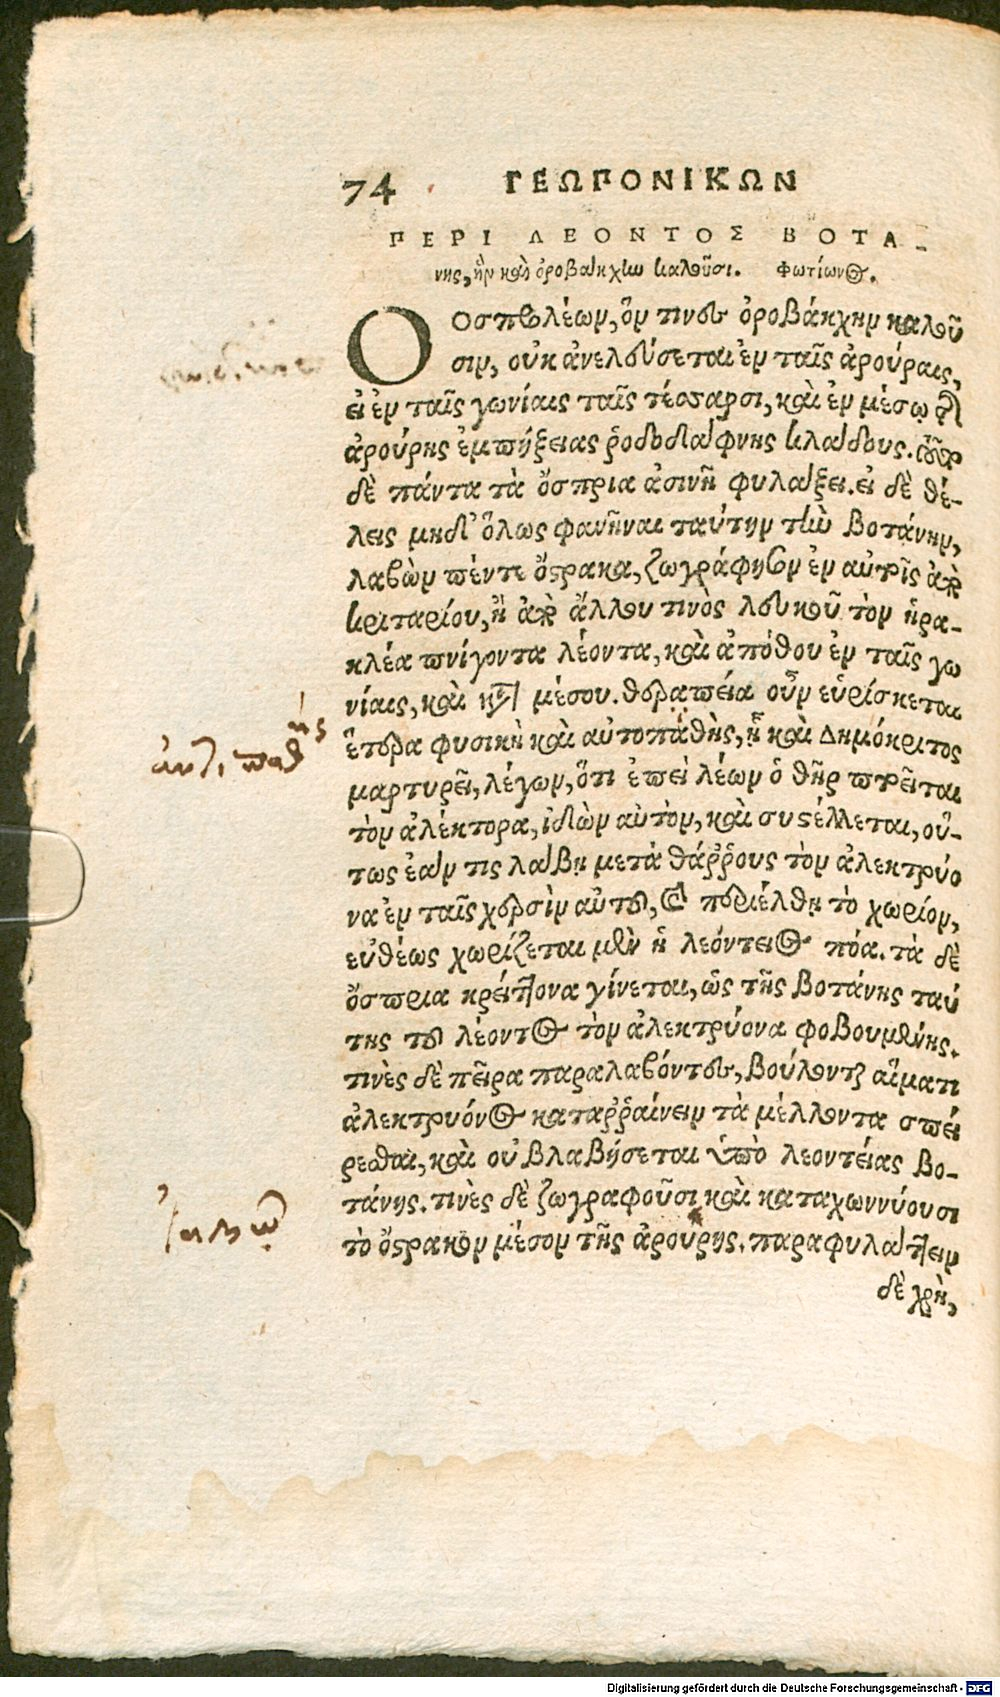 74 ΓΕΩΠΟΝΙΚΩΝ
ΠΕΡΙ ΛΕΟΝΤΟΣ ΒΟΤΑ-
νης, ἣν καὶ ὀροβάκχην καλοῦσι. Φωτίωνος.
Ὁ ὀσπρολέων, ὅν τινες ὀροβάκχην καλοῦ
σιν, οὐκ ἀνελεύσεται ἐν ταῖς ἀρούραις,
εἰ ἐν ταῖς γωνίαις ταῖς τέσσαρσι, καὶ ἐν μέσῳ τῆς
ἀρούρης ἐμπήξειας ῥοδοδάφνης κλάδους.
δὲ πάντα τὰ ὄσπρια ἀσινῆ φυλάξει. εἰ δὲ θέ-
λεις μηδ' ὅλως φανῆναι ταύτην τὴν βοτάνην,
λαβὼν πέντε ὄστρακα, ζωγράφησον ἐν αὐτοῖς ἀπὸ
κριταρίου, ἢ ἀπὸ ἄλλου τινὸς λευκοῦ τὸν ἡρα-
κλέα πνίγοντα λέοντα, καὶ ἀπόθου ἐν ταῖς γω
νίαις, καὶ κατὰ μέσου. θεραπεία οὖν εὑρίσκεται
ἑτέρα φυσικὴ καὶ αὐτοπάθης, ᾗ καὶ Δημόκριτος
μαρτυρεῖ, λέγων, ὅτι ἐπεὶ λέων ὁ θὴρ πτρεῖται
τὸν ἀλέκτορα, ἰδὼν αὐτὸν, καὶ συστέλλεται, οὕ-
τως ἐάν τις λάβῃ μετὰ θάῤῥους τὸν ἀλεκτρύο
να ἐν ταῖς χερσὶν αὐτοῦ, καὶ περιέλθῃ τὸ χωρίον,
εὐθέως χωρίζεται μὲν ἡ λεόντειος πόα. τὰ δὲ
ὄσπρια κρείττονα γίνεται, ὡς τῆς βοτάνης ταύ
της τοῦ λέοντος τὸν ἀλεκτρύονα φοβουμένης.
τινὲς δὲ πεῖρα παραλαβόντες, βούλονται αἵματι
ἀλεκτρυόνος καταῤῥαίνειν τὰ μέλλοντα σπεί
ρεσθαι, καὶ οὐ βλαβήσεται ὑπὸ λεοντείας βο-
τάνης. τινὲς δὲ ζωγραφοῦσι καὶ καταχωννύουσι
τὸ ὄστρακον μέσον τῆς ἀρούρης. παραφυλάττειν
δὲ χρὴ,
ἀντιπαθής
Digitalisierung gefördert durch die Deutsche Forschungsgemeinschaft - DFG